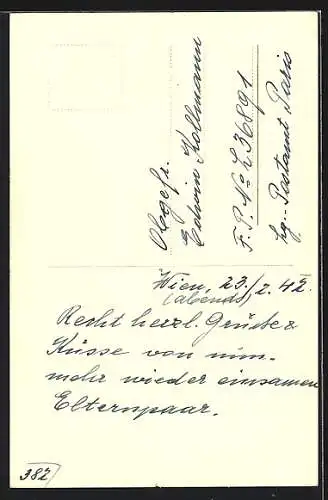 Obgefr.
Edwin Kollmann
F. P. No L 36891
Lg.-Postamt Paris
Wien, 23./2. 42
(abends)
Recht herzl. Grüsse &
Küsse von nun-
mehr wieder einsamen
Elternpaar.
382